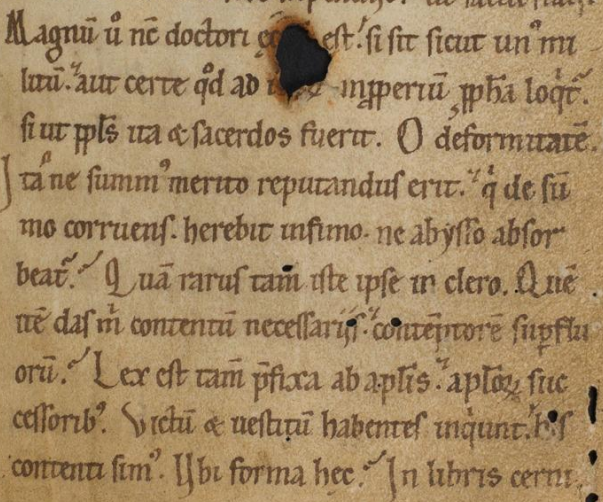 Magnū ů nc̄ doctori est. si sit sicut un᷒ mi
litū. aut certe qd̄ ad īꝓperiū ꝓpha loqt̄.
si ut ppl̄s ita & sacerdos fuerit. O deformitatē.
Itane summ᷒ merito reputandus erit. q̇ de sū
mo corruens. herebit infimo. ne abysso absor
beat̄. Quā rarus tam̄ iste ipse in clero. Quē
itē das m̄ contentū necessariis. contēptorē suꝑflu
orū. Lex est tam̄ p̄fixa ab apl̄is. apl̄oꝝ suc
cessorib᷒. Victū & uestitū habentes inquiunt. his
contenti sim᷒. Ubi forma hec. In libris cerni